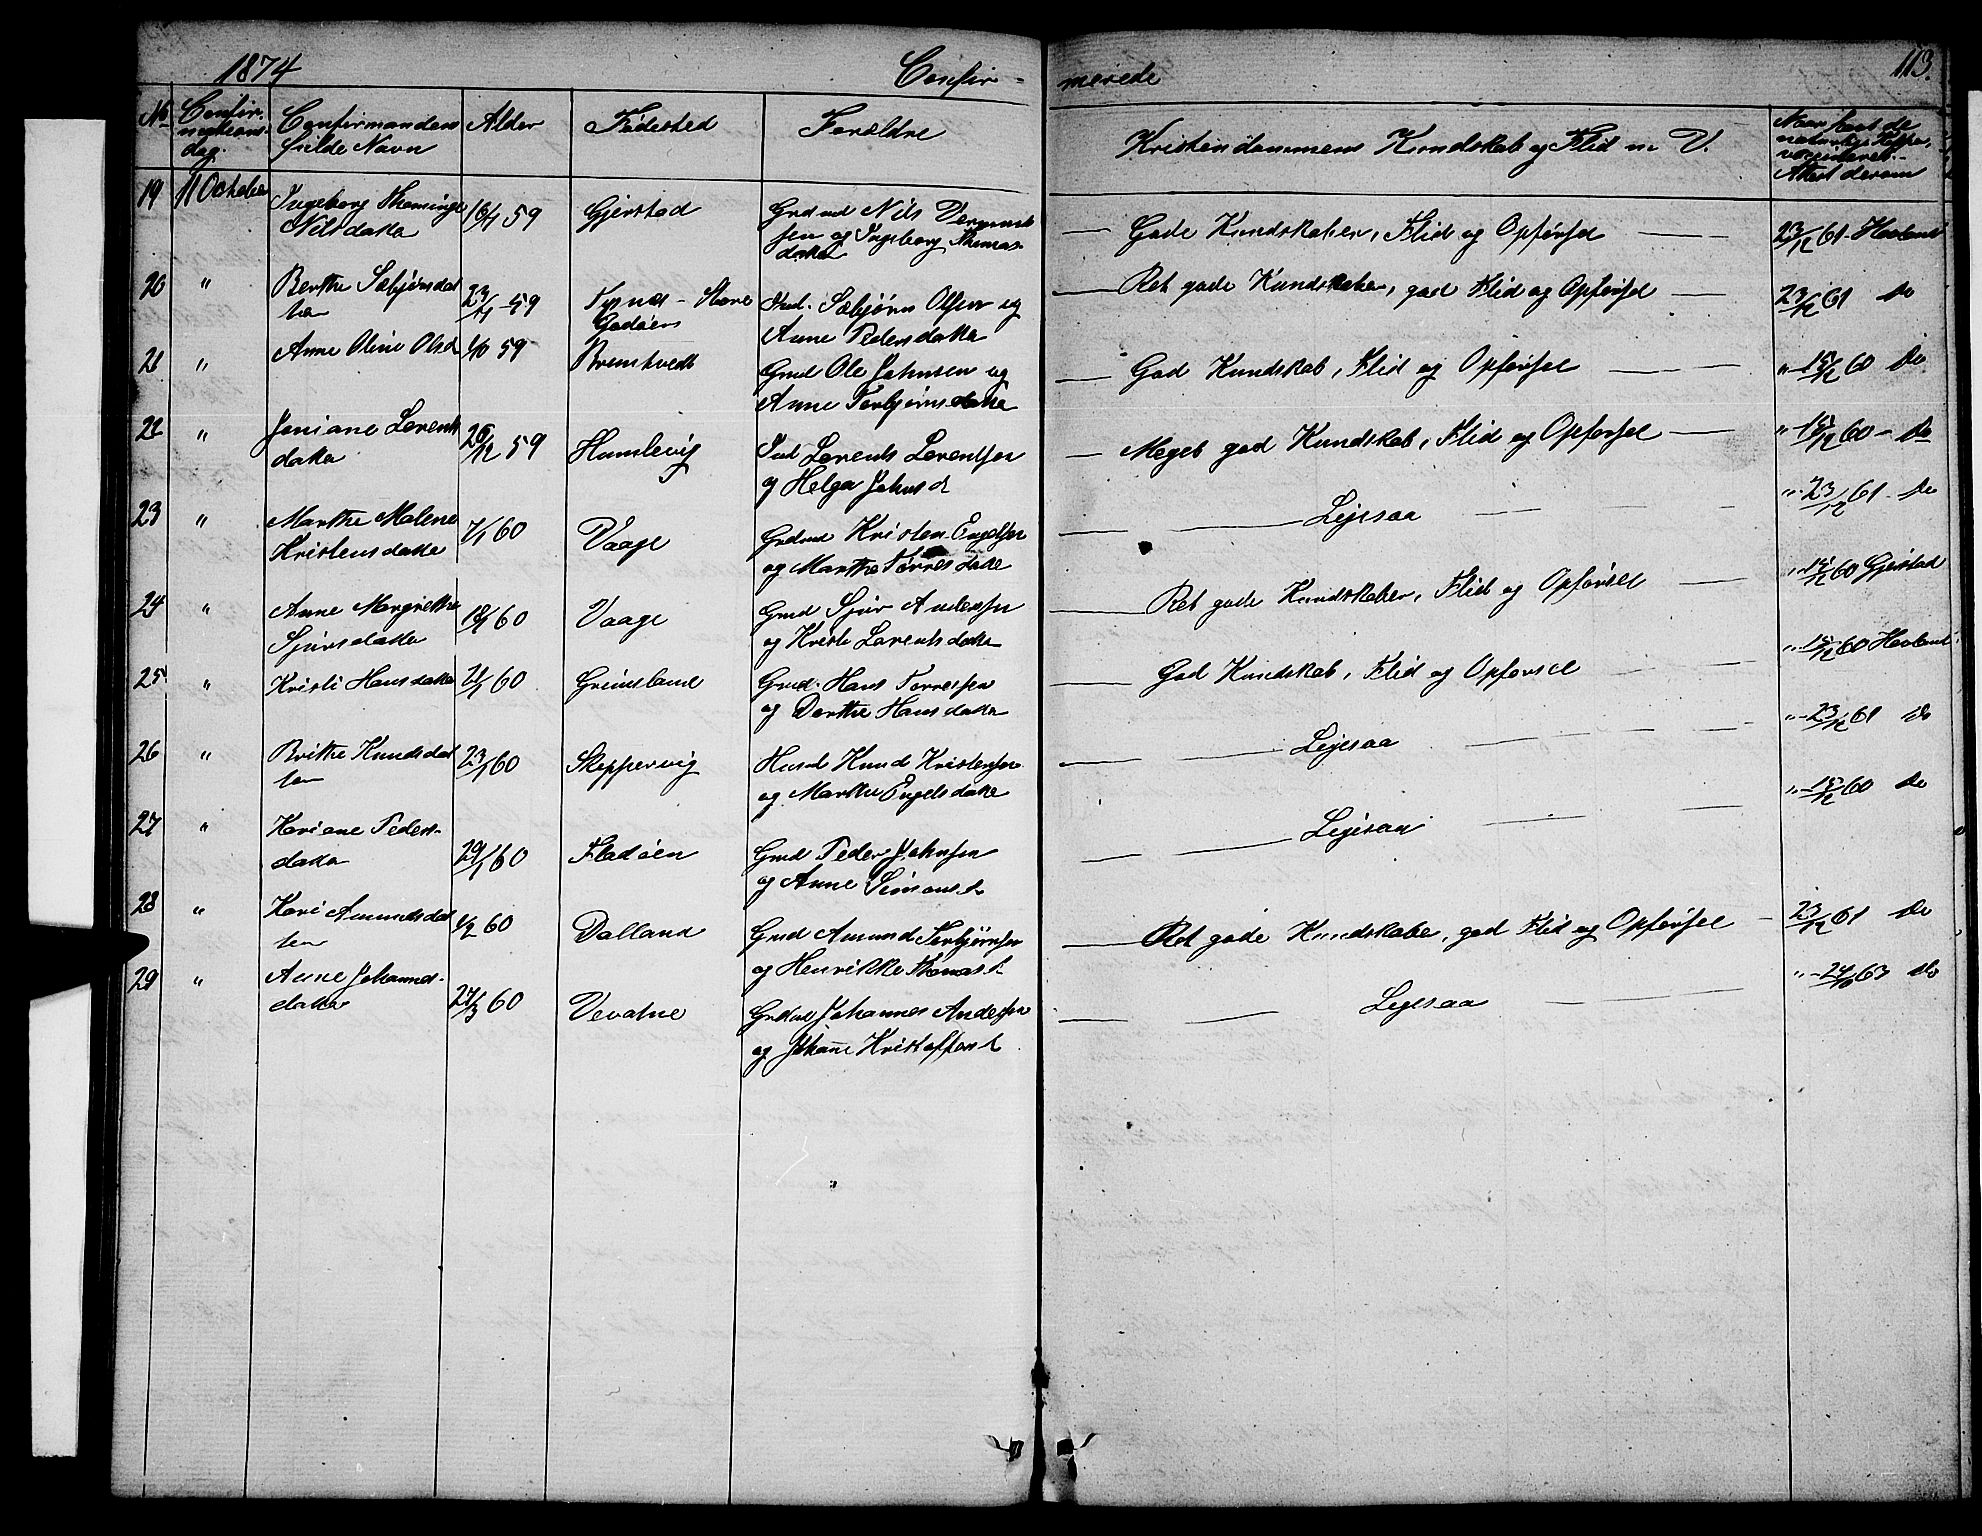 1874 Confir-
merede 113.
No Confirmations dag. Confirmandens fulde Navn Alder Fødested Forældre
Kristendommens Kundskab og Flid m V. Naar have de naturlige Kopper, vaccineret. Attest derom
19 11 October Ingeborg Thominge 16/4 59 Gjerstad Grdmd Nils
Nilsdatter sen og Ingeborg Thomas
datter
Gode Kundskaber, Flid og Opførsel 23/12 61 Havland
20 " Berthe Sæbjørnsdat 23/4 59 Tysnes - Store Sæbjørn Olsen og
ter Godøen Anne Pedersdatter
Ret gode Kundskaber, god Flid og Opførsel 23/12 61 Do
21 " Anne Oline Olsd 1/10 59 Bremtvedt Grmd Ole Johnsen og
Anne Torbjørnsdatter
God Kundskab, Flid og Opførsel " 15/12 60 Do
22 " Joniane Lorents 26/12 59 Humlevig Lorents Lorentsen
datter og Helga Johnsd
Meget god Kundskab, Flid og Opførsel " 15/12 60 - Do
23 " Marthe Malene 7/1 60 Vaage Grdmd Kristen Engelsen
Kristensdatter og Marthe Tørresdatter
Ligesaa " 23/12 61 - Do
24 " Anne Margrethe 18/1 60 Vaage Grmd Sjur Andersen
Sjursdatter og Kristi Lorentsdatter
Ret gode Kundskaber, Flid og Opførsel " 15/12 60 Gjerstad
25 " Kristi Hansdatter 21/1 60 Grimsland Grmd. Hans Tørresen
og Dorthe Hansdatter
God Kundskab, Flid og Opførsel " 15/12 60 Havland
26 " Brithe Knudsdat 23/1 60 Skeppervig Husmd Knud Kristensen
ter og Marthe Engelsdatter
Ligesaa " 23/12 61 Do
27 " Kariane Peders-
datter 29/1 60 Fladøen Grmd Peder Johnsen
og Anne Simonsd
Ligesaa " 15/12 60 Do
28 " Kari Amundsdat 1/2 60 Dalland Grmd Amund Torbjørnsen
ter og Henrikke Thomasd
Ret gode Kundskaber, god Flid og Opførsel 23/12 61 Do
29 " Anne Johannes-
datter 27/3 60 Vevatne Grdmd Johannes Andersen
og Johanne Kristoffersd
Ligesaa " 24/10 63 Do